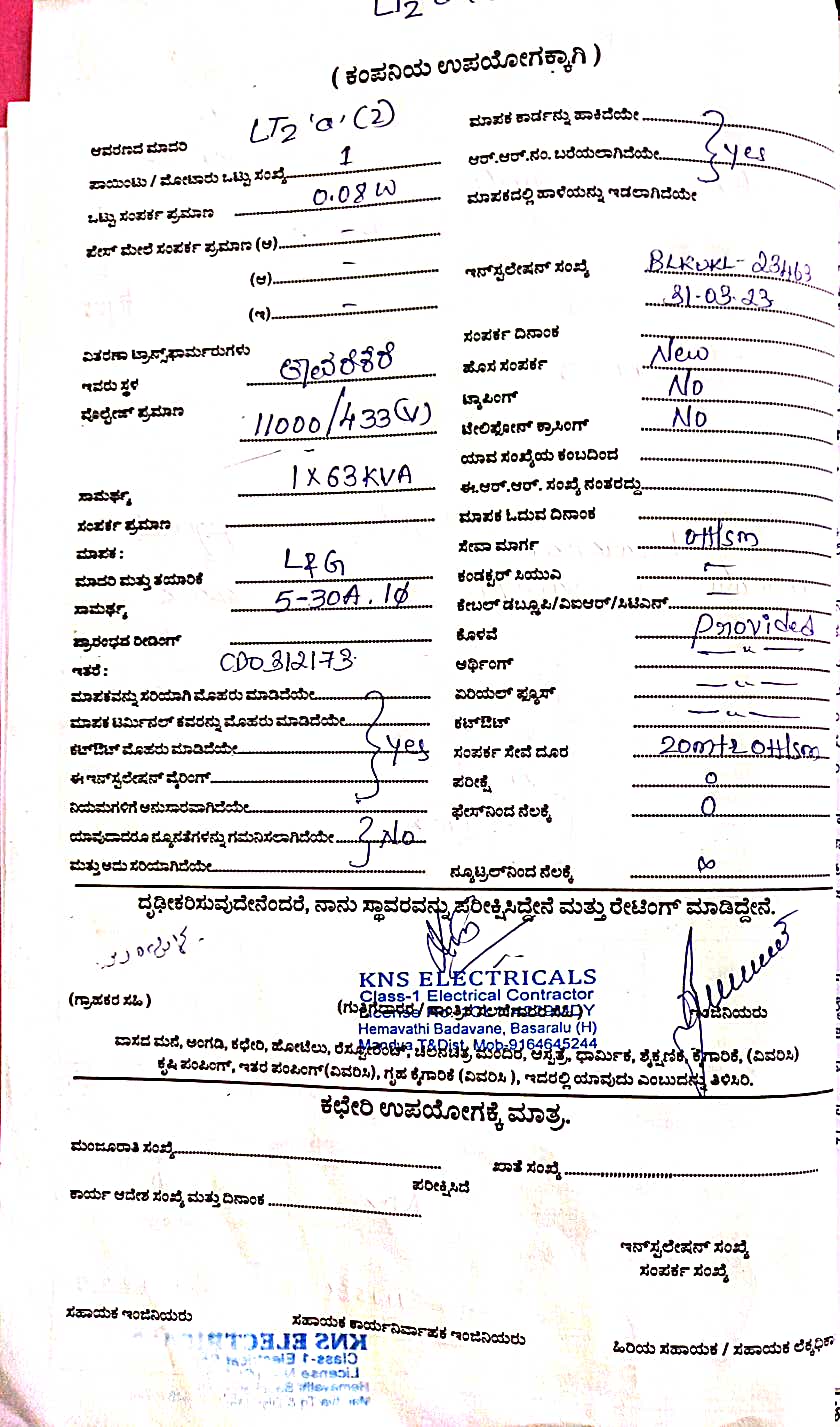 LT2
( ಕಂಪನಿಯ ಉಪಯೋಗಕ್ಕಾಗಿ )
ಆವರಣದ ಮಾದರಿ LT2 'a' (2)
ಪಾಯಿಂಟು / ಮೋಟಾರು ಒಟ್ಟು ಸಂಖ್ಯೆ 1
ಒಟ್ಟು ಸಂಪರ್ಕ ಪ್ರಮಾಣ 0.08 W
ಫೇಸ್ ಮೇಲೆ ಸಂಪರ್ಕ ಪ್ರಮಾಣ (ಅ) -
(ಆ) -
(ಇ) -
ವಿತರಣಾ ಟ್ರಾನ್ಸ್‌ಫಾರ್ಮರುಗಳು
ಇವರು ಸ್ಥಳ ತಾವರೆಕೆರೆ
ವೊಲ್ಟೇಜ್ ಪ್ರಮಾಣ 11000/433(V)
ಸಾಮರ್ಥ್ಯ 1X63KVA
ಸಂಪರ್ಕ ಪ್ರಮಾಣ
ಮಾಪಕ :
ಮಾದರಿ ಮತ್ತು ತಯಾರಿಕೆ L&G
ಸಾಮರ್ಥ್ಯ 5-30A. 1Φ
ಪ್ರಾರಂಭದ ರೀಡಿಂಗ್
ಇತರೆ : CD0312173
ಮಾಪಕವನ್ನು ಸರಿಯಾಗಿ ಮೊಹರು ಮಾಡಿದೆಯೇ
ಮಾಪಕ ಟರ್ಮಿನಲ್ ಕವರನ್ನು ಮೊಹರು ಮಾಡಿದೆಯೇ
ಕಟ್‌ಔಟ್ ಮೊಹರು ಮಾಡಿದೆಯೇ yes
ಈ ಇನ್‌ಸ್ಟಲೇಷನ್ ವೈರಿಂಗ್
ನಿಯಮಗಳಿಗೆ ಅನುಸಾರವಾಗಿದೆಯೇ
ಯಾವುದಾದರೂ ನ್ಯೂನತೆಗಳನ್ನು ಗಮನಿಸಲಾಗಿದೆಯೇ No
ಮತ್ತು ಅದು ಸರಿಯಾಗಿದೆಯೇ
ಮಾಪಕ ಕಾರ್ಡನ್ನು ಹಾಕಿದೆಯೇ
ಆರ್.ಆರ್.ನಂ. ಬರೆಯಲಾಗಿದೆಯೇ yes
ಮಾಪಕದಲ್ಲಿ ಹಾಳೆಯನ್ನು ಇಡಲಾಗಿದೆಯೇ
ಇನ್‌ಸ್ಟಲೇಷನ್ ಸಂಖ್ಯೆ BLKVKL-23463
31-03-23
ಸಂಪರ್ಕ ದಿನಾಂಕ
ಹೊಸ ಸಂಪರ್ಕ New
ಟ್ಯಾಪಿಂಗ್ No
ಟೆಲಿಫೋನ್ ಕ್ರಾಸಿಂಗ್ No
ಯಾವ ಸಂಖ್ಯೆಯ ಕಂಬದಿಂದ
ಈ.ಆರ್.ಆರ್. ಸಂಖ್ಯೆ ನಂತರದ್ದು
ಮಾಪಕ ಓದುವ ದಿನಾಂಕ
ಸೇವಾ ಮಾರ್ಗ OH/sm
ಕಂಡಕ್ಟರ್ ಸಿಯುವಿ -
ಕೇಬಲ್ ಡಬ್ಲೂಪಿ/ವಿಐಆರ್/ಸಿಟಿಎನ್ -
ಕೊಳವೆ Provided
ಅರ್ಥಿಂಗ್ —"—
ಏರಿಯಲ್ ಫ್ಯೂಸ್ —"—
ಕಟ್‌ಔಟ್ —"—
ಸಂಪರ್ಕ ಸೇವೆ ದೂರ 20mt2 OH/sm
ಪರೀಕ್ಷೆ 0
ಫೇಸ್‌ನಿಂದ ನೆಲಕ್ಕೆ 0
ನ್ಯೂಟ್ರಲ್‌ನಿಂದ ನೆಲಕ್ಕೆ ∞
ದೃಢೀಕರಿಸುವುದೇನೆಂದರೆ, ನಾನು ಸ್ಥಾವರವನ್ನು ಪರೀಕ್ಷಿಸಿದ್ದೇನೆ ಮತ್ತು ರೇಟಿಂಗ್ ಮಾಡಿದ್ದೇನೆ.
KNS ELECTRICALS
Class-1 Electrical Contractor
(ಗ್ರಾಹಕರ ಸಹಿ )
ಇಂಜಿನಿಯರು
Hemavathi Badavane, Basaralu (H)
Mandya T&Dist. Mob-9164645244
ವಾಸದ ಮನೆ, ಅಂಗಡಿ, ಕಛೇರಿ, ಹೋಟೆಲು, ರೆಸ್ಟೋರೆಂಟ್, ಚಲನಚಿತ್ರ ಮಂದಿರ, ಆಸ್ಪತ್ರೆ, ಧಾರ್ಮಿಕ, ಶೈಕ್ಷಣಿಕ, ಕೈಗಾರಿಕೆ, (ವಿವರಿಸಿ)
ಕೃಷಿ ಪಂಪಿಂಗ್, ಇತರ ಪಂಪಿಂಗ್(ವಿವರಿಸಿ), ಗೃಹ ಕೈಗಾರಿಕೆ (ವಿವರಿಸಿ ), ಇದರಲ್ಲಿ ಯಾವುದು ಎಂಬುದನ್ನು ತಿಳಿಸಿರಿ.
ಕಛೇರಿ ಉಪಯೋಗಕ್ಕೆ ಮಾತ್ರ.
ಮಂಜೂರಾತಿ ಸಂಖ್ಯೆ
ಖಾತೆ ಸಂಖ್ಯೆ
ಪರೀಕ್ಷಿಸಿದೆ
ಕಾರ್ಯ ಆದೇಶ ಸಂಖ್ಯೆ ಮತ್ತು ದಿನಾಂಕ
ಇನ್‌ಸ್ಟಲೇಷನ್ ಸಂಖ್ಯೆ
ಸಂಪರ್ಕ ಸಂಖ್ಯೆ
ಸಹಾಯಕ ಇಂಜಿನಿಯರು
ಸಹಾಯಕ ಕಾರ್ಯನಿರ್ವಾಹಕ ಇಂಜಿನಿಯರು
ಹಿರಿಯ ಸಹಾಯಕ / ಸಹಾಯಕ ಲೆಕ್ಕಧಿಕಾ